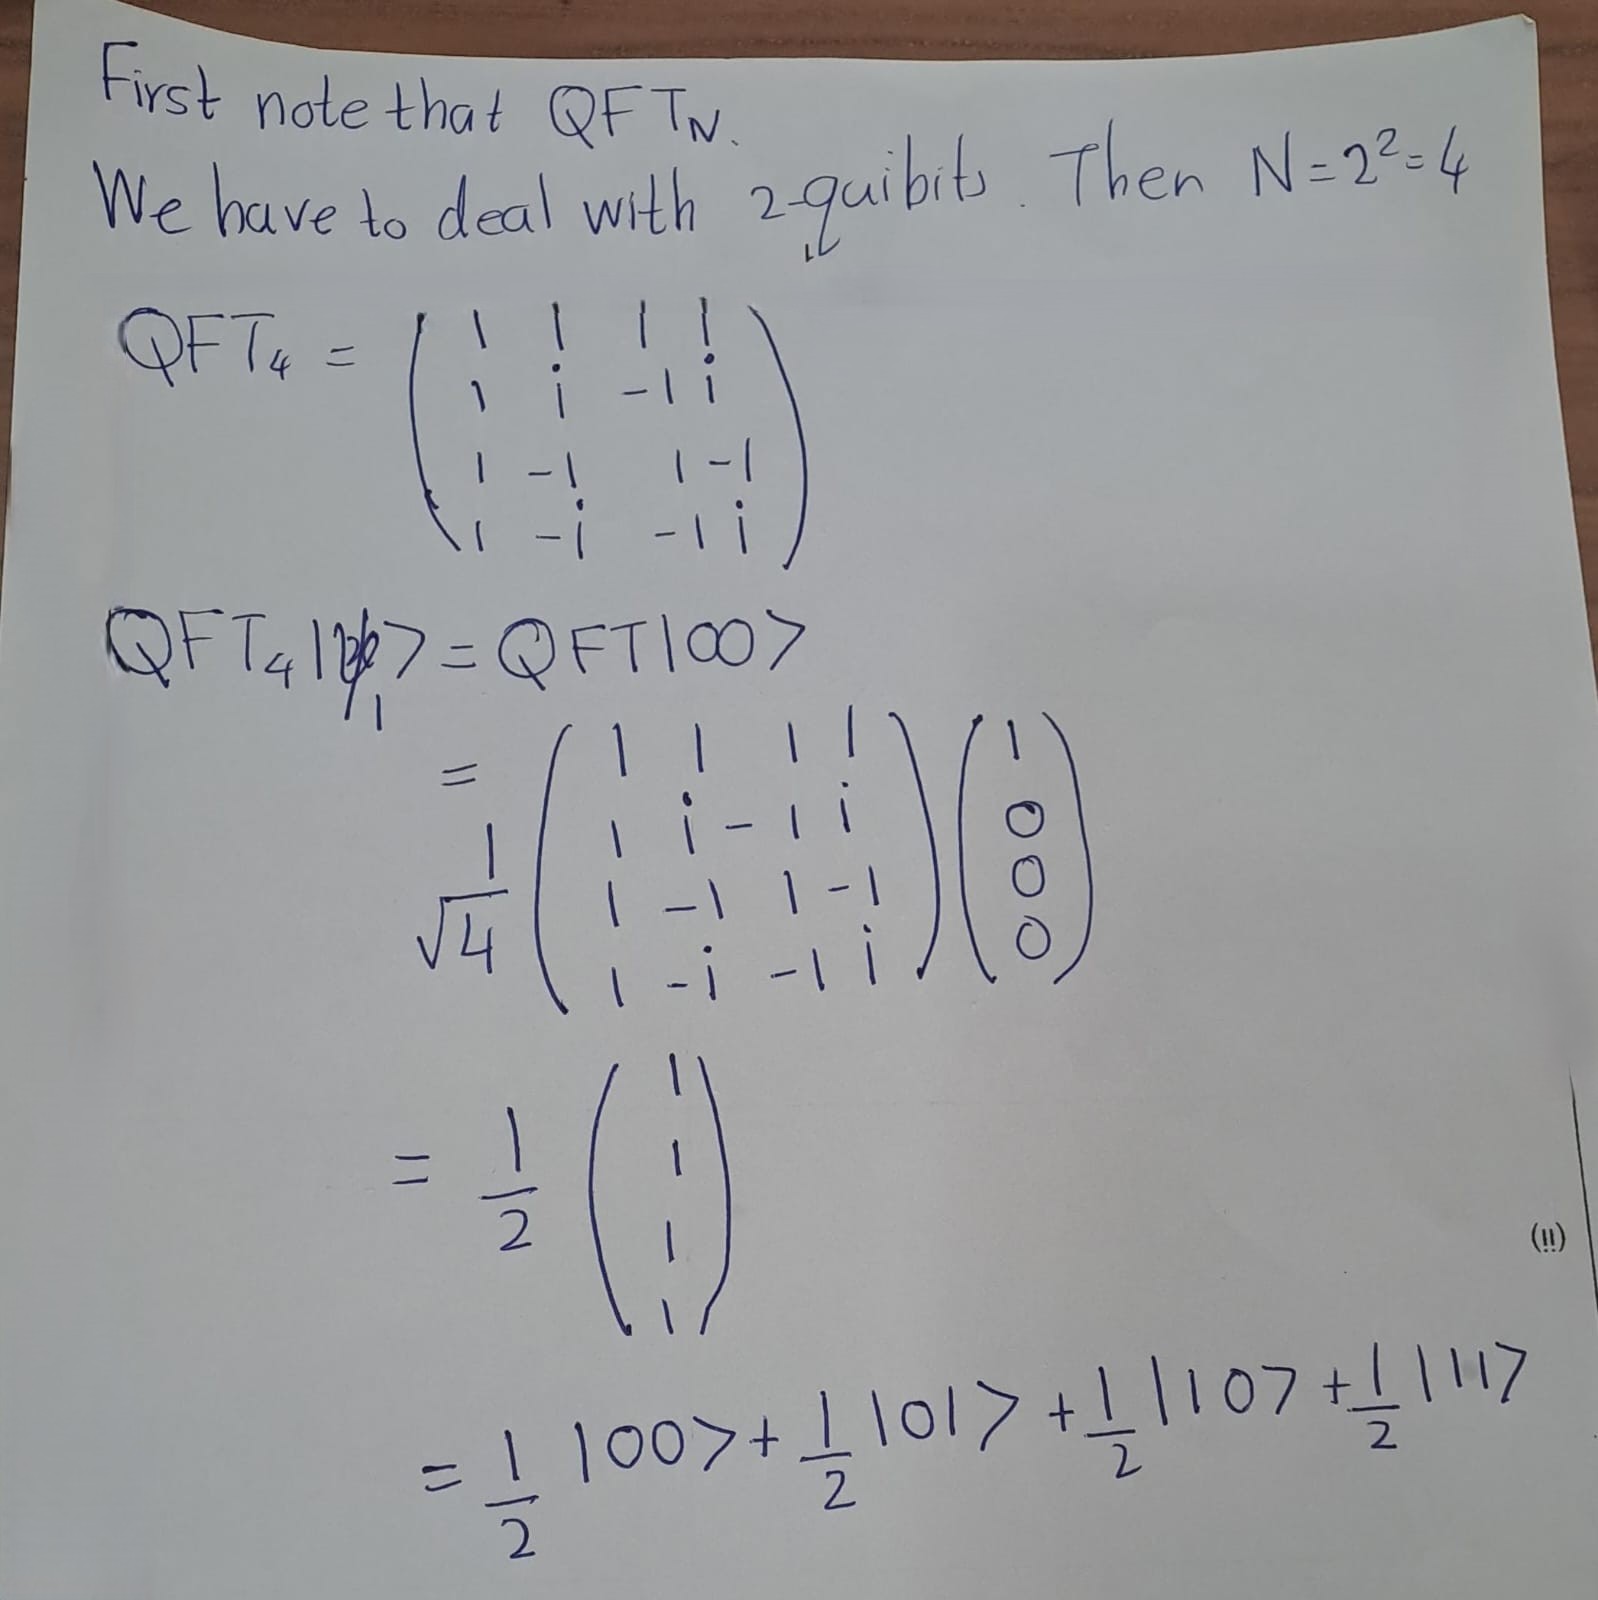 First note that QFT_N.
We have to deal with 2-quibits. Then N=2²=4
QFT₄ = ( 1 1 1 1
1 i -1 i
1 -1 1 -1
1 -i -1 i )
QFT₄|ψ₁> = QFT|00>
= 1/√4 ( 1 1 1 1
1 i -1 i
1 -1 1 -1
1 -i -1 i ) ( 1
0
0
0 )
= 1/2 ( 1
1
1
1 )
(!!)
= 1/2 |00> + 1/2 |01> + 1/2 |10> + 1/2 |11>